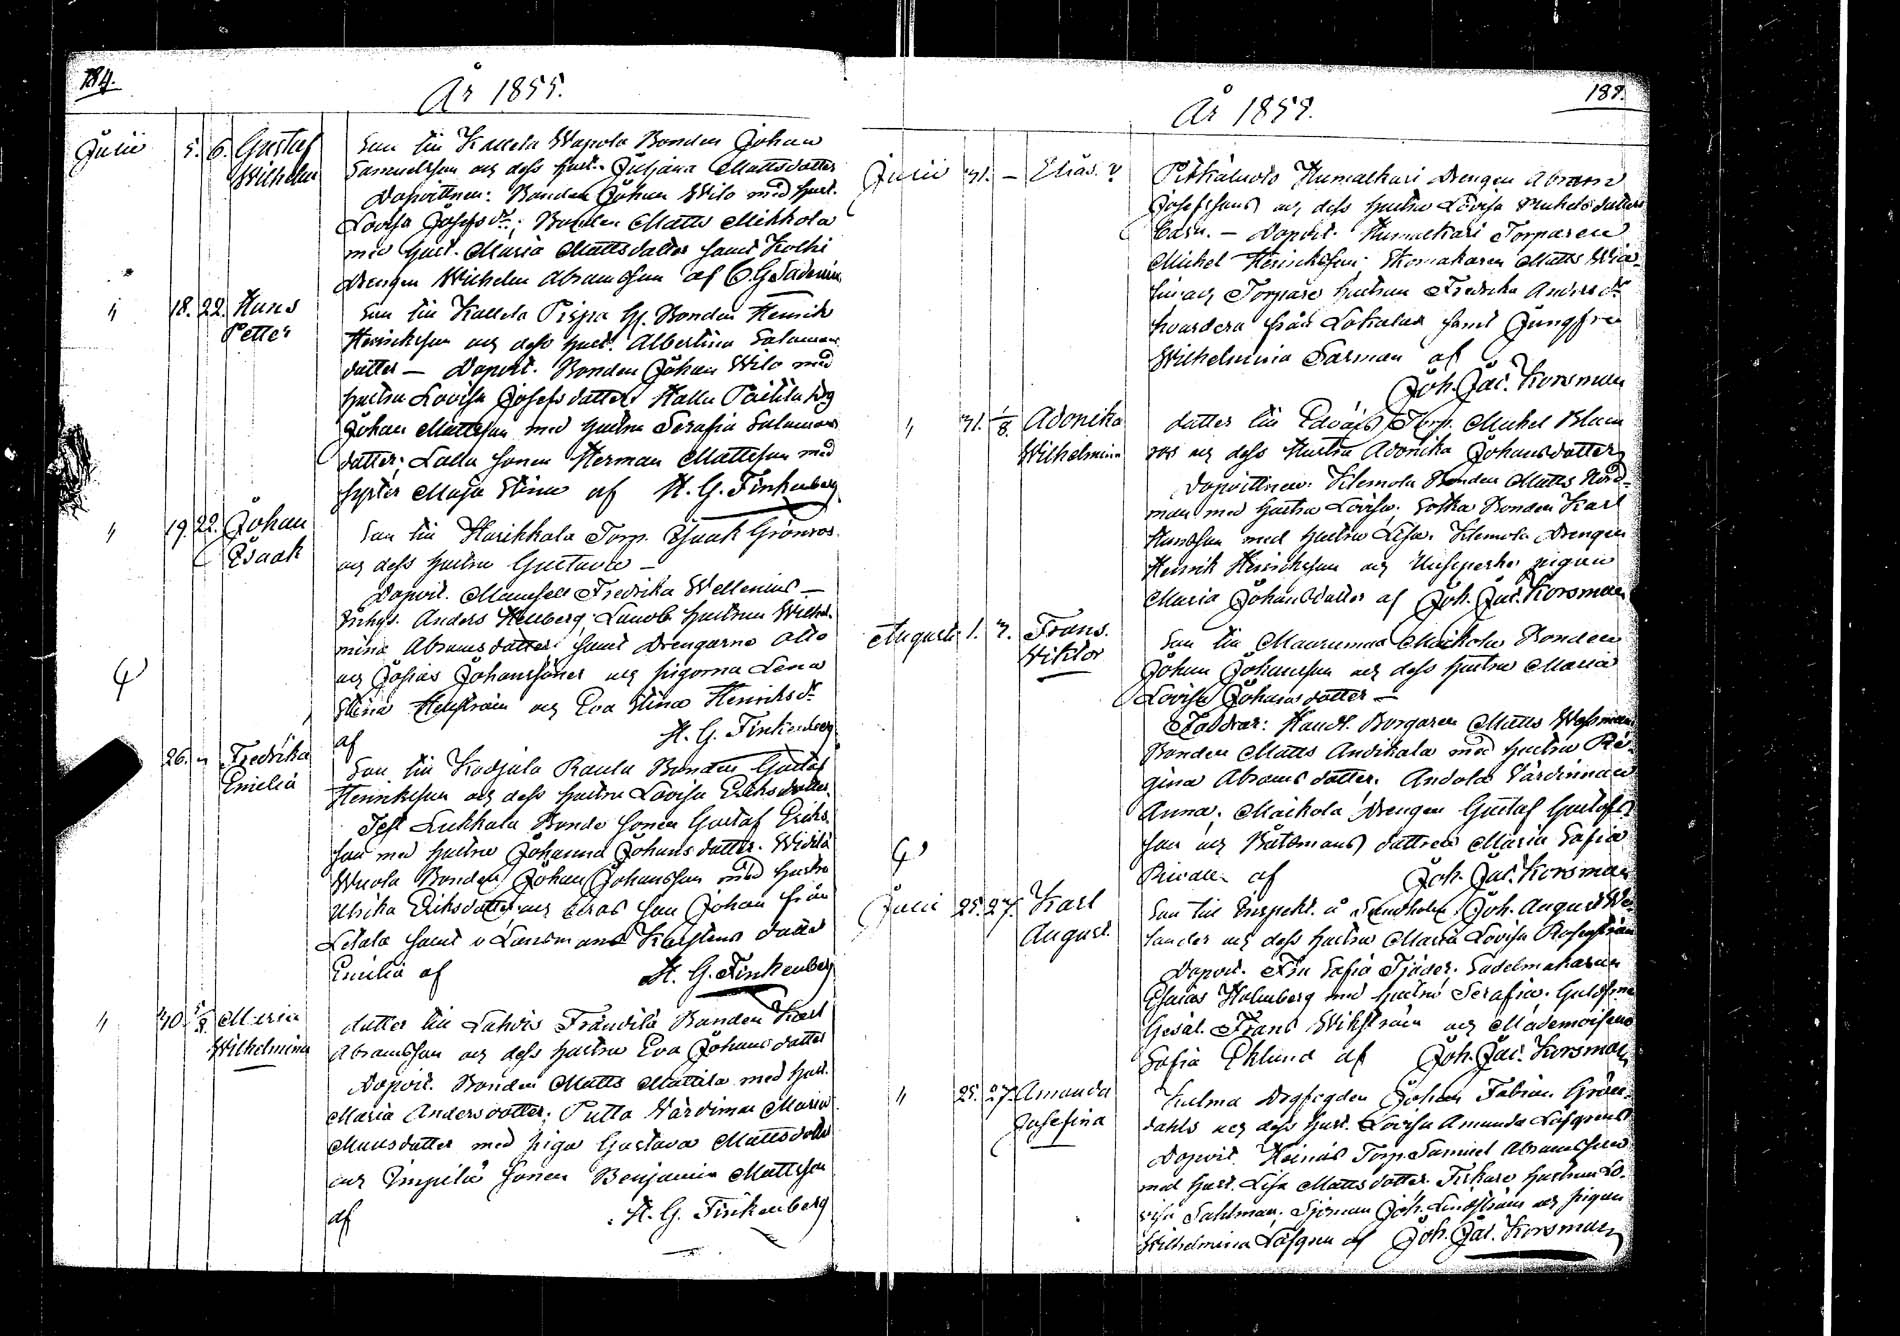 184.
År 1855.
Julii 5. 6. Gustaf Wilhelm
Son till Kalleta Wapola Bonden Johan
Samuelsson och dess hust. Juljana Mattsdotter
Dopvittnen: Bonden Johan Wilo med hust.
Lovisa Josefsdr; Bonden Matts Mikkola
med hust. Maria Mattsdotter samt Kolhi
Drengen Wilhelm Abramsson af C. G. Sadenius
" 18. 22. Hans Petter
Son till Kalleta Pispa Bonden Henrik
Henriksson och dess hust. Albertina Salomons
dotter — Dopvit. Bonden Johan Wilo med
hustru Lovisa Josefsdotter,
Johan Mattsson med hustru Serafia Salomons
dotter; Lalla sonen Herman Mattsson med
syster Maja Stina af H. G. Finkenberg
" 19. 22. Johan Isaak
Son till Harikkala Torp. Isaak Grönroos
och dess hustru Gustava —
Dopvit. Mamsell Fredrika Wellenius —
Anders Hellberg; hustrun Wilhel-
mina Abramsdotter; samt Drengarne Otto
och Josias Johanssöner och pigorna Lena
Stina Hellström och Eva Stina Henriksdr
af H. G. Finkenberg
26. " Fredrika Emilia
Son till Kodjala Raula Bonden Gustaf
Henriksson och dess hustru Lovisa Eriksdotter
Test Lukkala Bonde sonen Gustaf Eriks-
son med hustru Johanna Johansdotter. Widilä
Wuola Bonden Johan Johansson med hustru
Ulrika Eriksdotter och deras son Johan från
Letala samt v Länsmans Karstens dotter
Emilia af H. G. Finkenberg
" 30. 5/8. Maria Wilhelmina
dotter till Lahvis Frändilä Bonden Karl
Abramsson och dess hustru Eva Johansdotter
Dopvit. Bonden Matts Mattila med hust.
Maria Andersdotter; Putta Värdinnan Maria
Mattsdotter med piga Gustava Mattsdotter
och Timpilä sonen Benjamin Mattsson
af H. G. Finkenberg
185.
År 1855.
Julii 31. — Elias.
Pitkäluoto Humalkari Drengen Abram
Josefssons och dess hustru Lovisa Mickelsdotters
barn. — Dopvit. Humalkari Torparen
Michel Henriksson; Skomakaren Matts
och Torpare hustrun Fredrika Andersdr
hvardera från Lokalax samt Jungfru
Wilhelmina Sarman af
Joh. Jac. Korsman
" 31. 1/8. Adonika Wilhelmina
dotter till Torp. Mickel Blom
roos och dess Hustru Adonika Johansdotter
Dopvittnen: Klemola Bonden Matts Nord-
man med hustru Lovisa. Sotka Bonden Karl
Hansson med hustru Lisa. Klemola Drengen
Henrik Henriksson och pigan
Maria Johansdotter af Joh. Jac. Korsman
Augusti 1. 3. Frans. Wiktor
Son till Maurumaa Maikola Bonden
Johan Johansson och dess hustru Maria
Lovisa Johansdotter —
Faddrar: Handl. Borgaren Matts Wessman
Bonden Matts Andikala med hustru Re-
gina Abramsdotter. Andola Värdinnan
Anna. Maikola Drengen Gustaf Gustafs-
son och Båtsmans dottren Maria Safia
af Joh. Jac. Korsman
Julii 25. 27. Karl August.
Son till Inspekt. å Sundholm Joh. August We-
lander och dess hustru Maria Lovisa Rosenström
Dopvit. Fru Safia Tjäder. Sadelmakaren
Esaias Holmberg med hustru Serafia. Guldsme
Gesäl. Frans Wikström och Mademoisene
Safia Eklund af Joh. Jac. Korsman
" 25. 27. Amanda Josefina
Kulma Johan Fabian Grön-
dahls och dess hust. Lovisa Amanda Löfgrens
Dopvit. Heinäs Torp. Samuel Abramsson
med hust. Lisa Mattsdotter. Fiskare hustrun Lo-
visa Sahlman. Sjöman Joh. Lindström och pigan
Wilhelmina Löfgren af Joh. Jac. Korsman